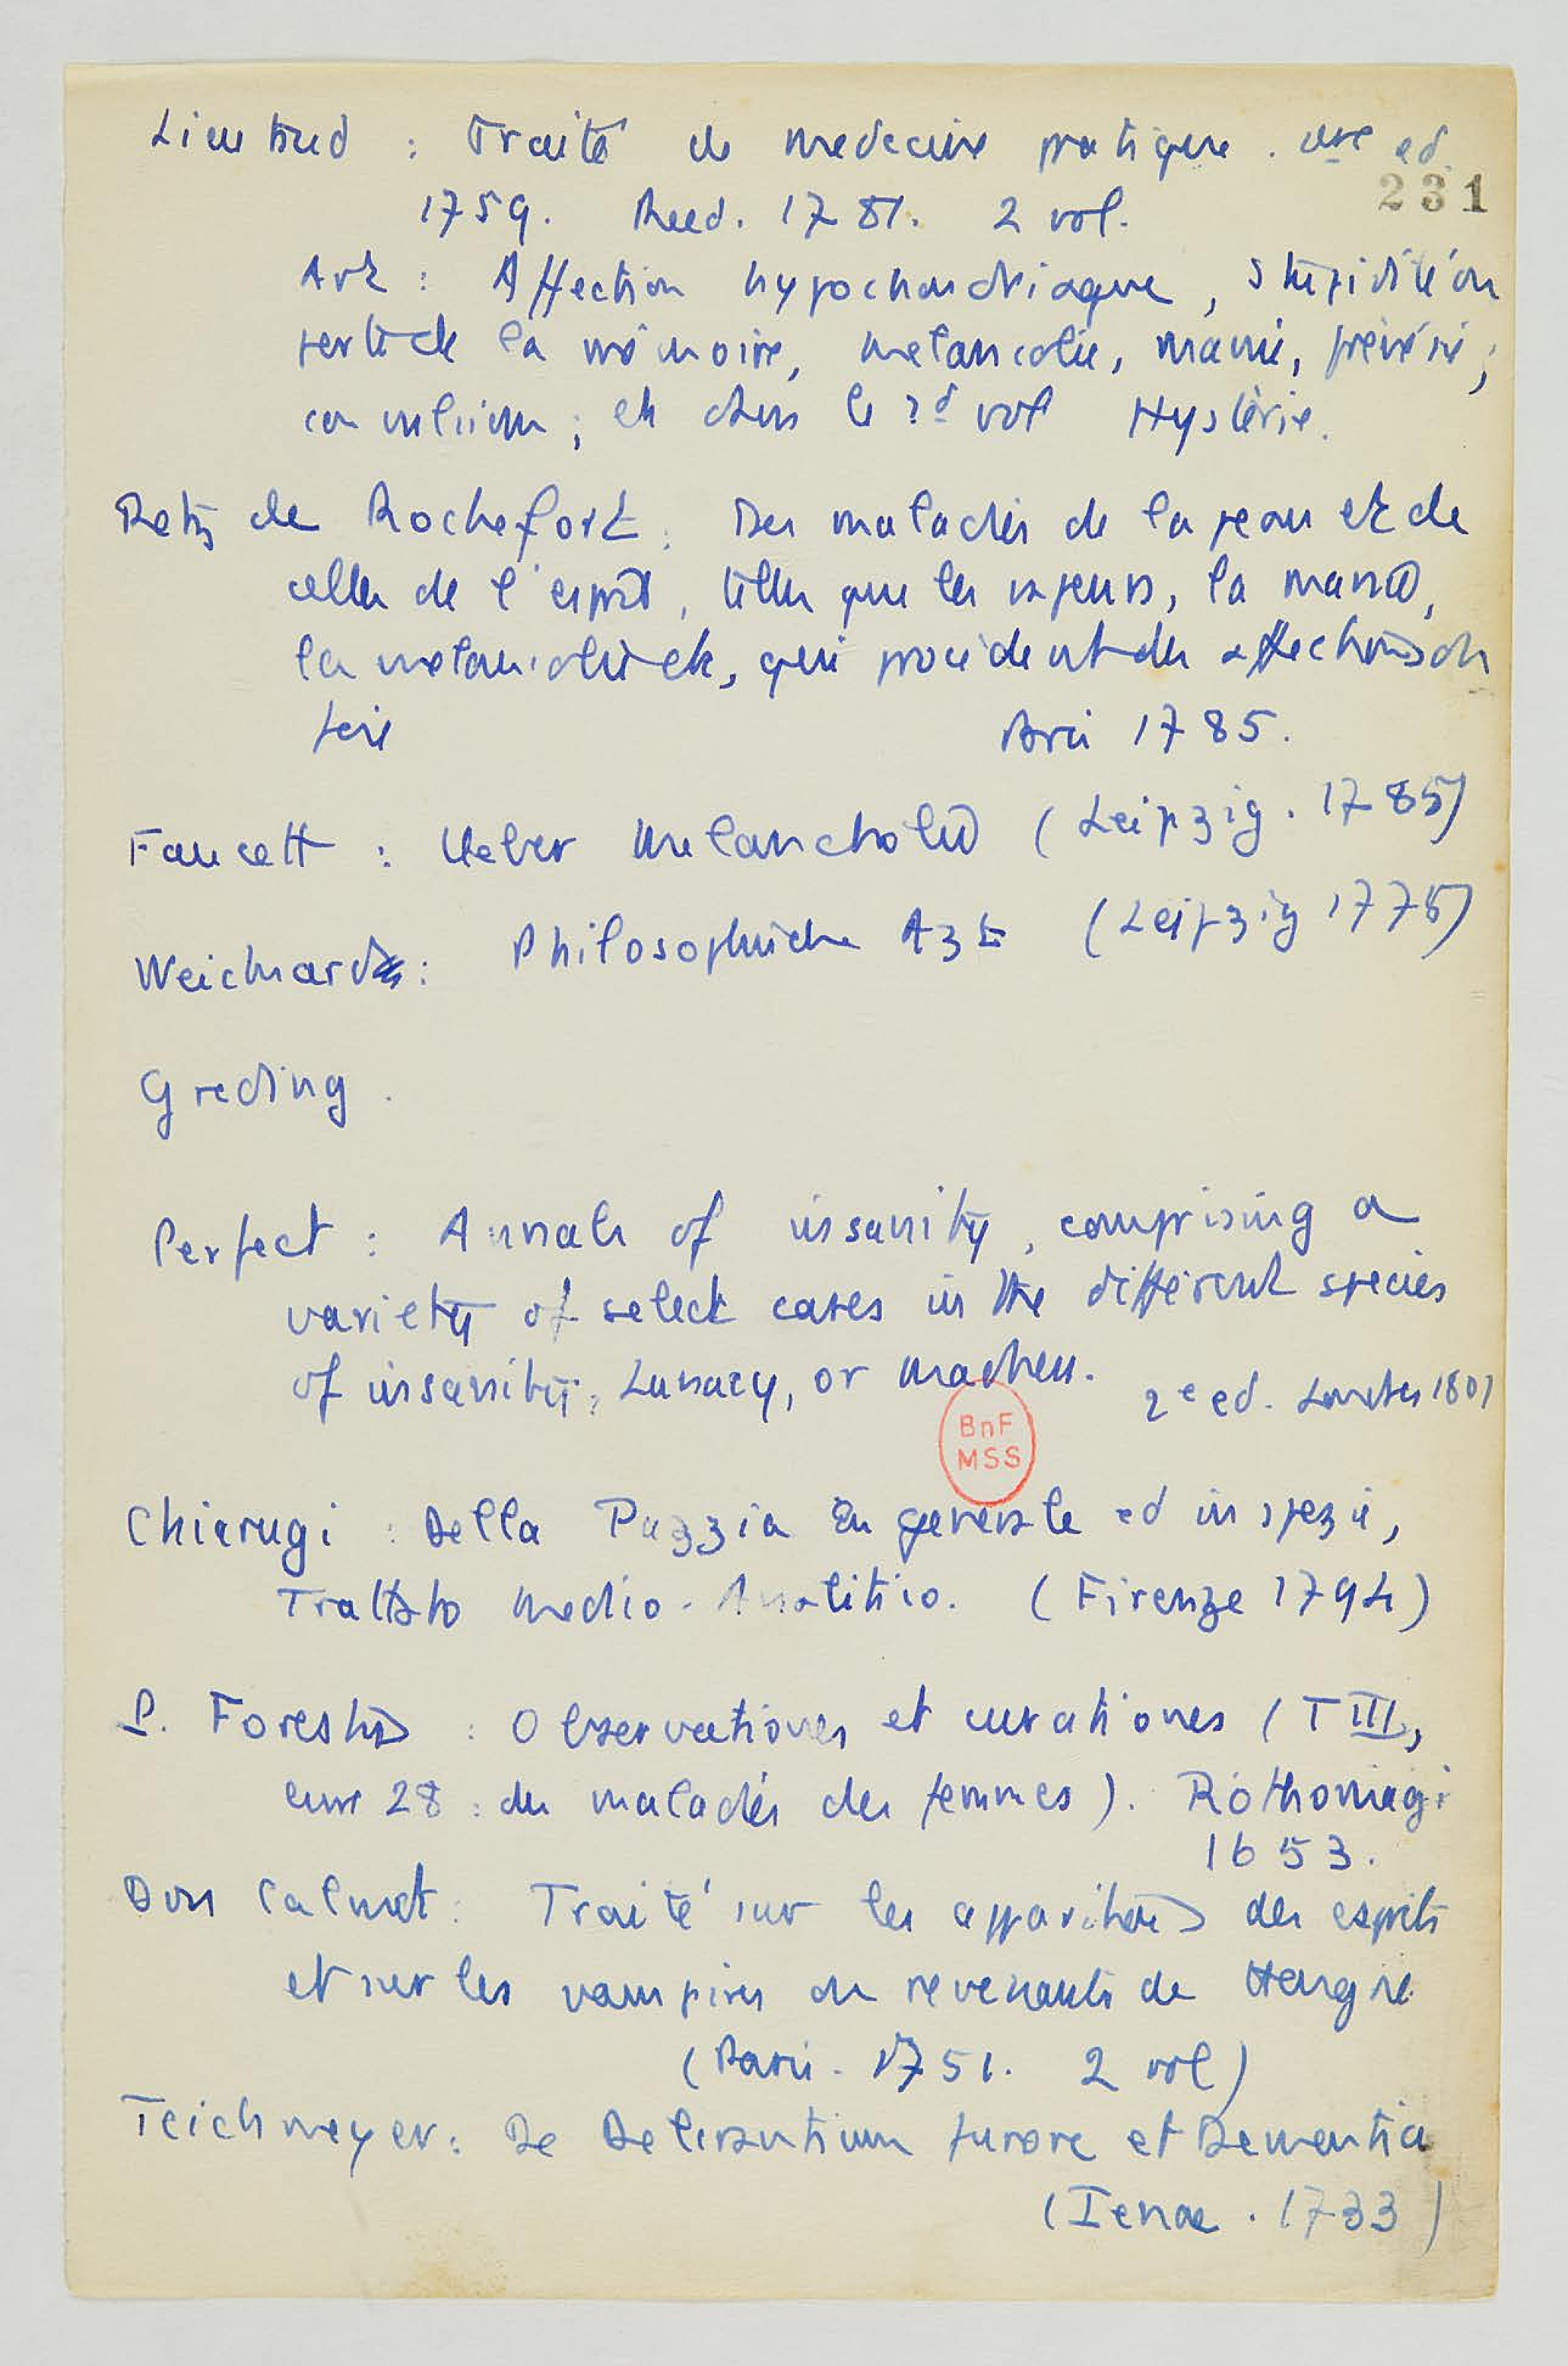 Lieutaud : Traité de medecine pratique. 1ere ed.
231
1759. Reed. 1781. 2 vol.
Art : Affection hypochondriaque, stupidité ou
perte de la mémoire, melancolie, manie, frénésie;
convulsion; et dans le 2d vol Hystérie.
Retz de Rochefort : Des maladies de la peau et de
celles de l'esprit, telles que les vapeurs, la manie,
la melancolie etc, qui procèdent des affections du
foie Paris 1785.
Faucett : Ueber Melancholie (Leipzig. 1785)
Weickard : Philosophische Arzt (Leipzig 1775)
Greding.
Perfect : Annals of insanity, comprising a
variety of select cases in the different species
of insanity, Lunacy, or madness. 2e ed. Londres 1801
BnF
MSS
Chiarugi : Della Pazzia in generale ed in spezie,
Trattato medico-Analitico. (Firenze 1794)
P. Forestus : Observationes et curationes (T III,
livre 28 : des maladies des femmes). Rothomagi
1653.
Dom Calmet : Traité sur les apparitions des esprits
et sur les vampires ou revenants de Hongrie
(Paris. 1751. 2 vol)
Teichmeyer : De Delirantium furore et Dementia
(Ienae. 1733)